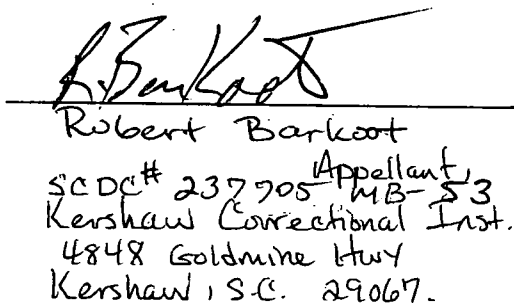 R. Barkoot
Robert Barkoot
Appellant,
SCDC# 237905 MB-53
Kershaw Correctional Inst.
4848 Goldmine Hwy
Kershaw, S.C. 29067.